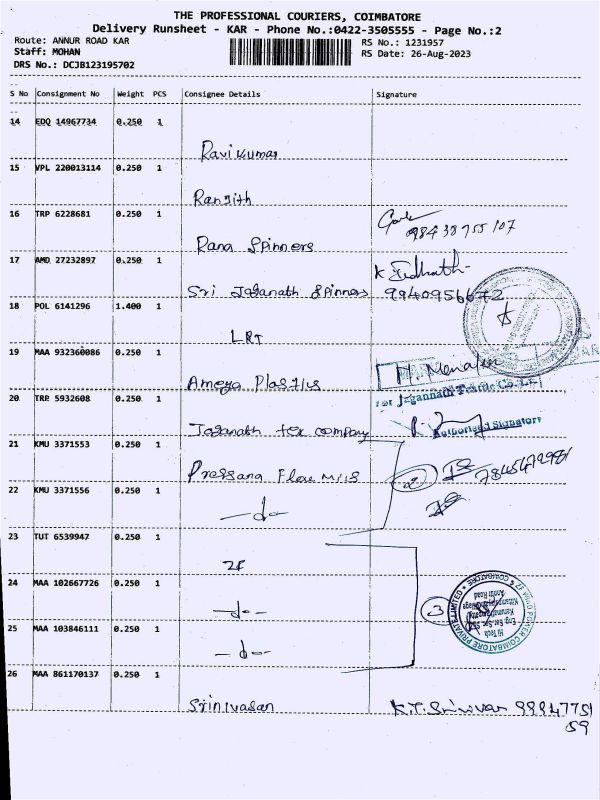 THE PROFESSIONAL COURIERS, COIMBATORE
Delivery Runsheet - KAR - Phone No.:0422-3505555 - Page No.:2
Route: ANNUR ROAD KAR
RS No.: 1231957
Staff: MOHAN
RS Date: 26-Aug-2023
DRS No.: DCJB123195702
S No Consignment No Weight PCS Consignee Details Signature
14 EDQ 14967734 0.250 1
Ravi Kumar
15 VPL 220013114 0.250 1
Ranjith
16 TRP 6228681 0.250 1
9843875５107
Rana Spinners
17 AMD 27232897 0.250 1
Sri Jaganath Spinners 9940956672
18 POL 6141296 1.400 1
LRT
19 MAA 932360086 0.250 1
Ameya Plastics
For Jagannath Textile Co. Ltd
20 TRP 5932608 0.250 1
Authorised Signatory
Jaganath tex company
21 KMU 3371553 0.250 1
Prassana Flour Mills
2
22 KMU 3371556 0.250 1
—d—
23 TUT 6539947 0.250 1
ZF
24 MAA 102667726 0.250 1
—d—
3
ZF WIND POWER COIMBATORE PRIVATE LIMITED
COIMBATORE
25 MAA 103846111 0.250 1
—d—
26 MAA 861170137 0.250 1
Srinivasan K.T. Srinivas 99847751
59